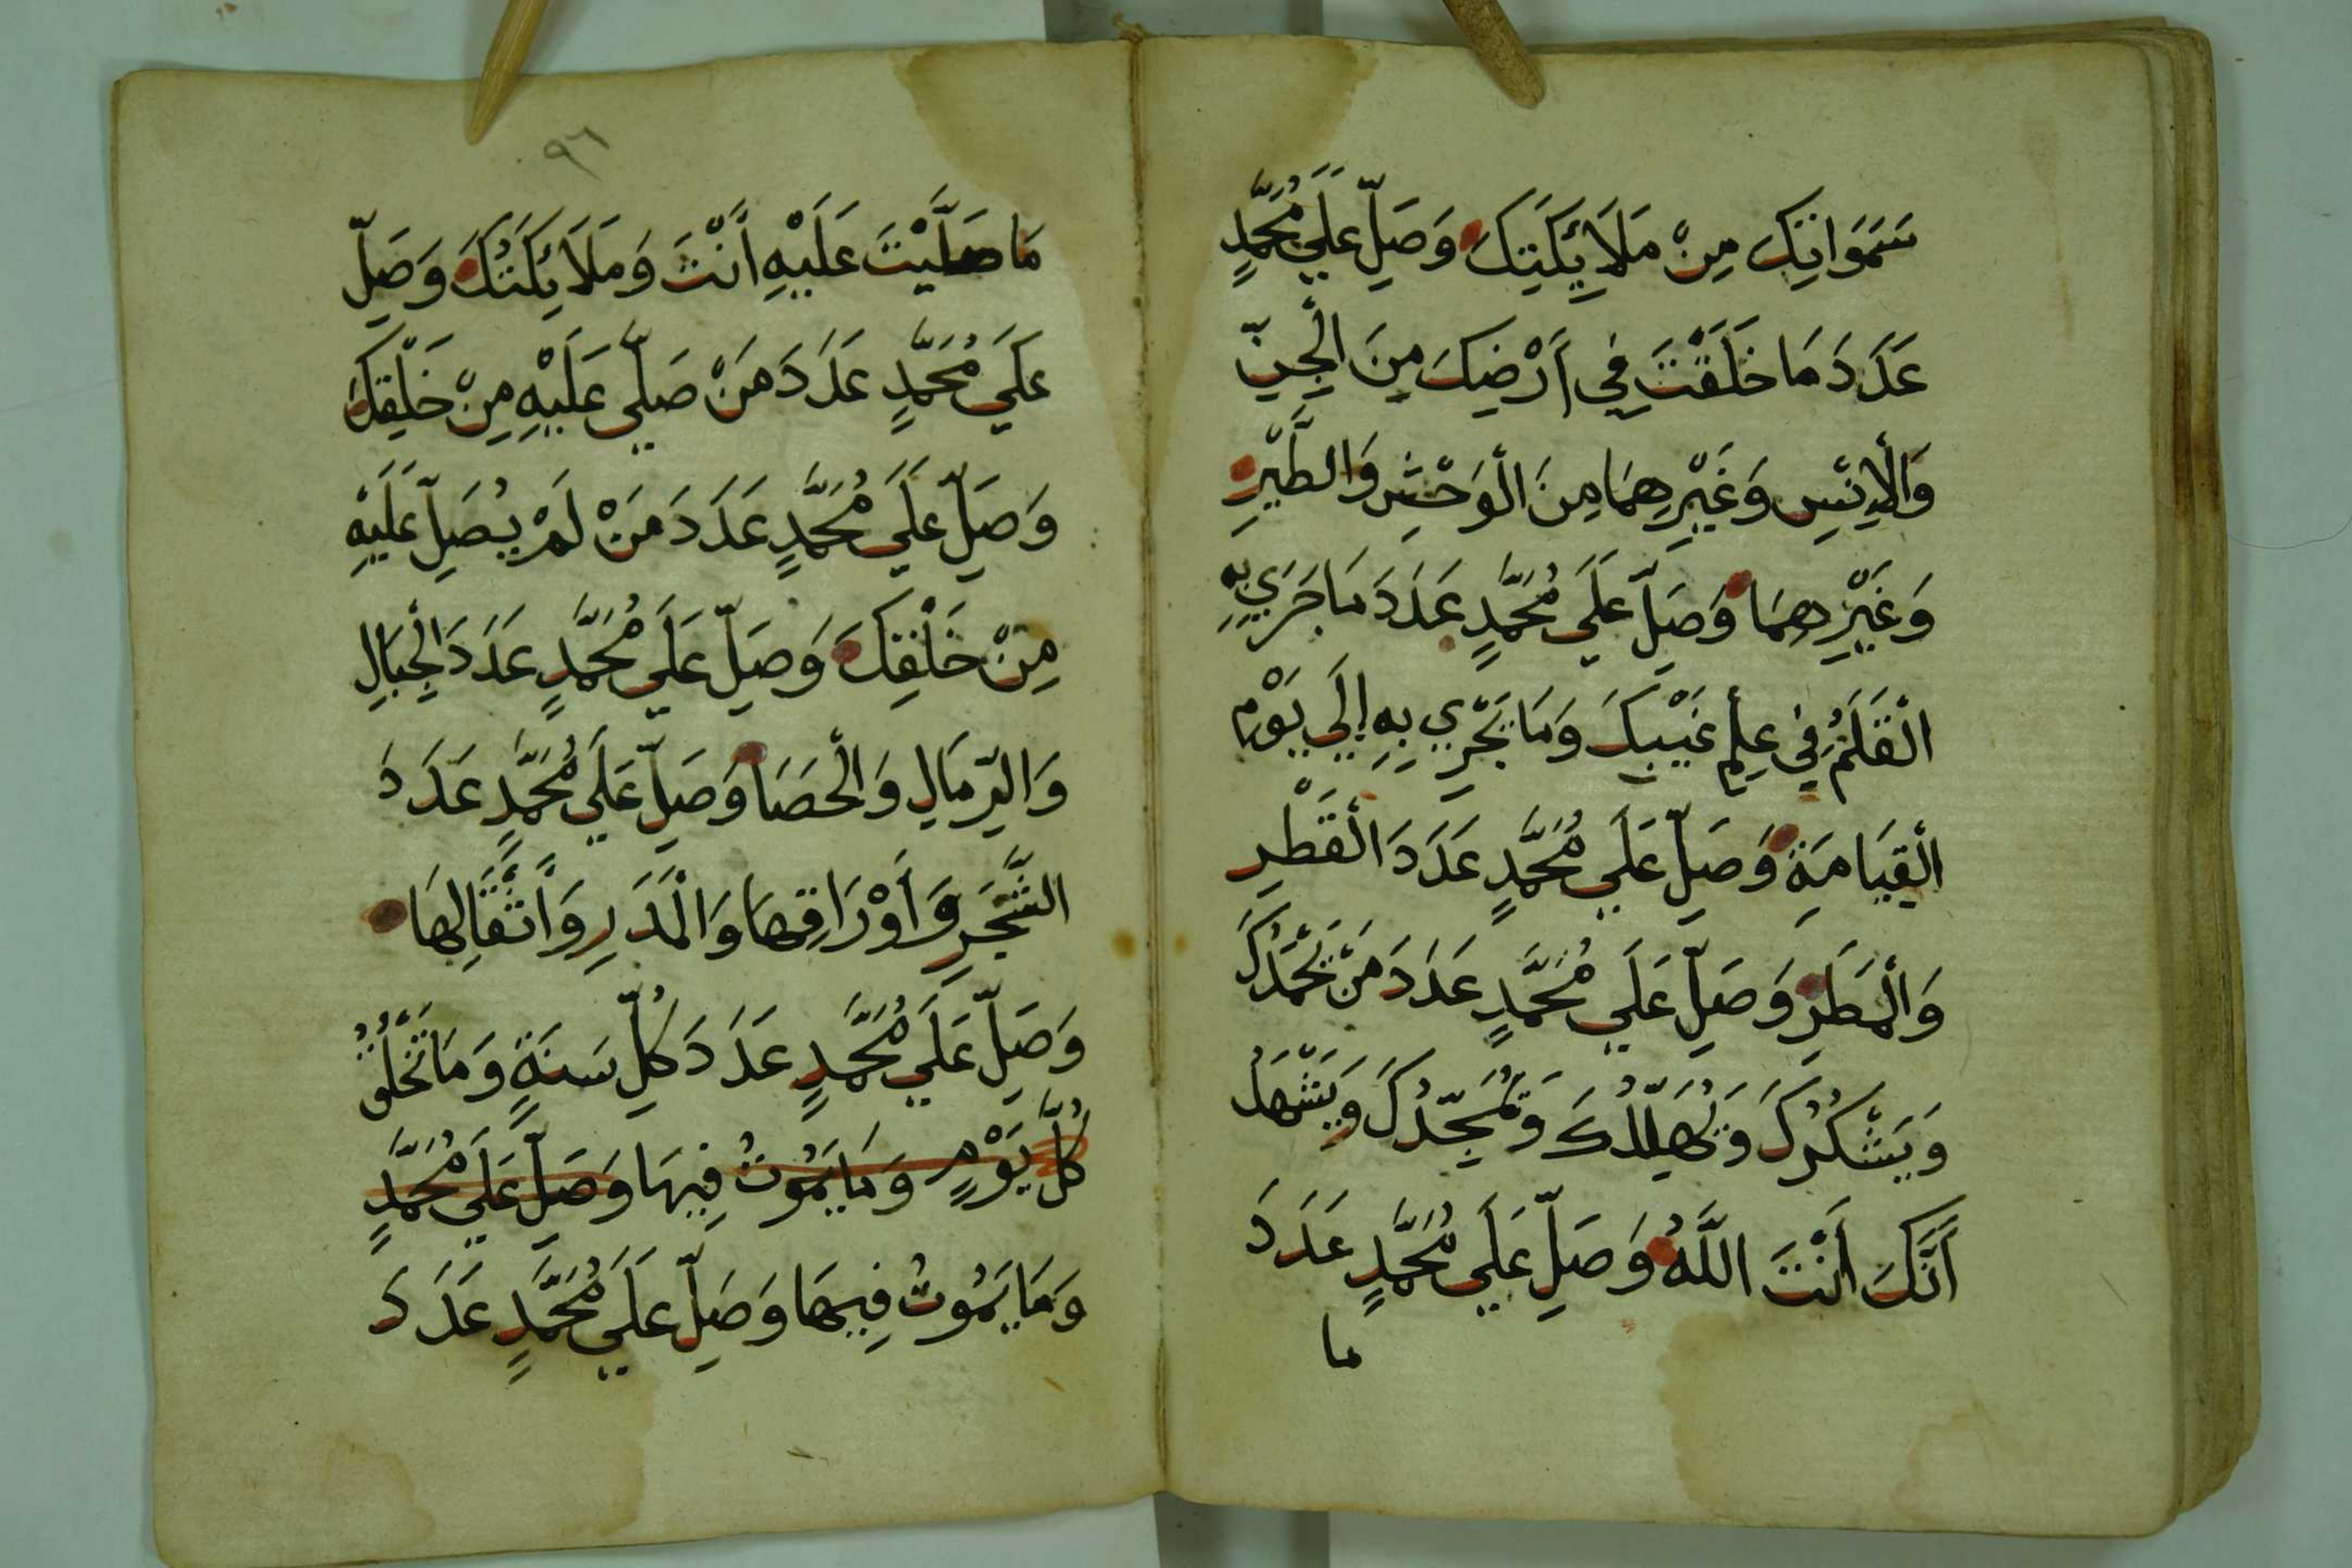 سَمَوَاتِكَ مِنْ مَلَائِكَتِكَ وَصَلِّ عَلَي مُحَمَّدٍ
عَدَدَ مَا خَلَقْتَ فِي أَرْضِكَ مِنَ الْجِنِّ
وَالْإِنْسِ وَغَيْرِهِمَا مِنَ الْوَحْشِ وَالطَّيْرِ
وَغَيْرِهِمَا وَصَلِّ عَلَي مُحَمَّدٍ عَدَدَ مَا جَرَي بِهِ
الْقَلَمُ فِي عِلْمِ غَيْبِكَ وَمَا يَجْرِي بِهِ إِلَي يَوْمِ
الْقِيَامَةِ وَصَلِّ عَلَي مُحَمَّدٍ عَدَدَ الْقَطْرِ
وَالْمَطَرِ وَصَلِّ عَلَي مُحَمَّدٍ عَدَدَ مَنْ يَحْمَدُكَ
وَيَشْكُرُكَ وَيُهَلِّلُكَ وَيُمَجِّدُكَ وَيَشْهَدُ
أَنَّكَ أَنْتَ اللَّهُ وَصَلِّ عَلَي مُحَمَّدٍ عَدَدَ
ما
٩٦
مَا صَلَّيْتَ عَلَيْهِ أَنْتَ وَمَلَائِكَتُكَ وَصَلِّ
عَلَي مُحَمَّدٍ عَدَدَ مَنْ صَلَّي عَلَيْهِ مِنْ خَلْقِكَ
وَصَلِّ عَلَي مُحَمَّدٍ عَدَدَ مَنْ لَمْ يُصَلِّ عَلَيْهِ
مِنْ خَلْقِكَ وَصَلِّ عَلَي مُحَمَّدٍ عَدَدَ الْجِبَالِ
وَالرِّمَالِ وَالْحَصَا وَصَلِّ عَلَي مُحَمَّدٍ عَدَدَ
الشَّجَرِ وَأَوْرَاقِهَا وَالْمَدَرِ وَأَثْقَالِهَا
وَصَلِّ عَلَي مُحَمَّدٍ عَدَدَ كُلِّ سَنَةٍ وَمَا تَخْلُقُ
كُلَّ يَوْمٍ وَمَا يَمُوتُ فِيهَا وَصَلِّ عَلَي مُحَمَّدٍ
وَمَا يَمُوتُ فِيهَا وَصَلِّ عَلَي مُحَمَّدٍ عَدَدَ